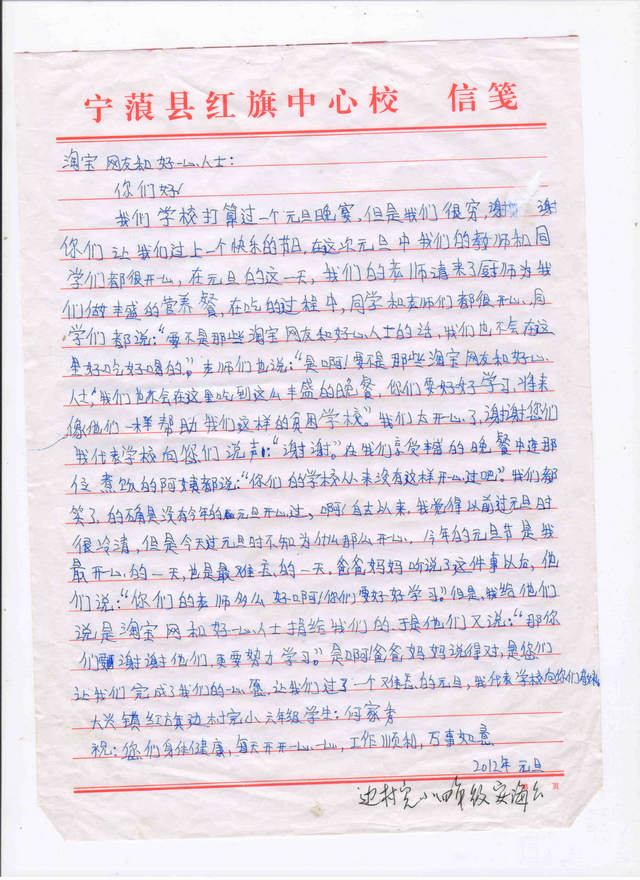 宁蒗县红旗中心校 信笺
淘宝网友和好心人士：
你们好！
我们学校打算过一个元旦晚赛，但是我们很穷，谢谢
你们让我们过上一个快乐的节日，在这次元旦中我们的教师和同
学们都很开心，在元旦的这一天，我们的老师请来了厨师为我
们做丰盛的营养餐，在吃的过程中，同学和老师们都很开心，同
学们都说：“要不是那些淘宝网友和好心人士的话，我们也不会在这
里好吃好喝的。”老师们也说：“是啊！要不是那些淘宝网友和好心
人士，我们也不会在这里吃到这么丰盛的晚餐，你们要好好学习，将来
像他们一样帮助我们这样的贫困学校。”我们太开心了，谢谢您们
我代表学校向您们说声：“谢谢”。在我们享受丰盛的晚餐中连那
位煮饭的阿姨都说：“你们的学校从来没有这样开心过吧”。我们都
笑了，的确是没有今年的元旦开心过，啊！自古以来，我觉得以前过元旦时
很冷清，但是今天过元旦时不知为什么那么开心，今年的元旦节是我
最开心的一天，也是最难忘的一天。爸爸妈妈听说了这件事以后，他
们说：“你们的老师多么好啊！你们要好好学习。”但是，我给他们
说是淘宝网和好心人士捐给我们的，于是他们又说：“那你
们谢谢他们，更要努力学习。”是啊爸爸妈妈说得对，是您们
让我们完成了我们的心愿，让我们过了一个难忘的元旦，我代表学校向你们
大兴镇红旗边村完小六年级学生：何家秀
祝：您们身体健康，每天开开心心，工作顺利，万事如意
2012年元旦
边村完小四年级
页